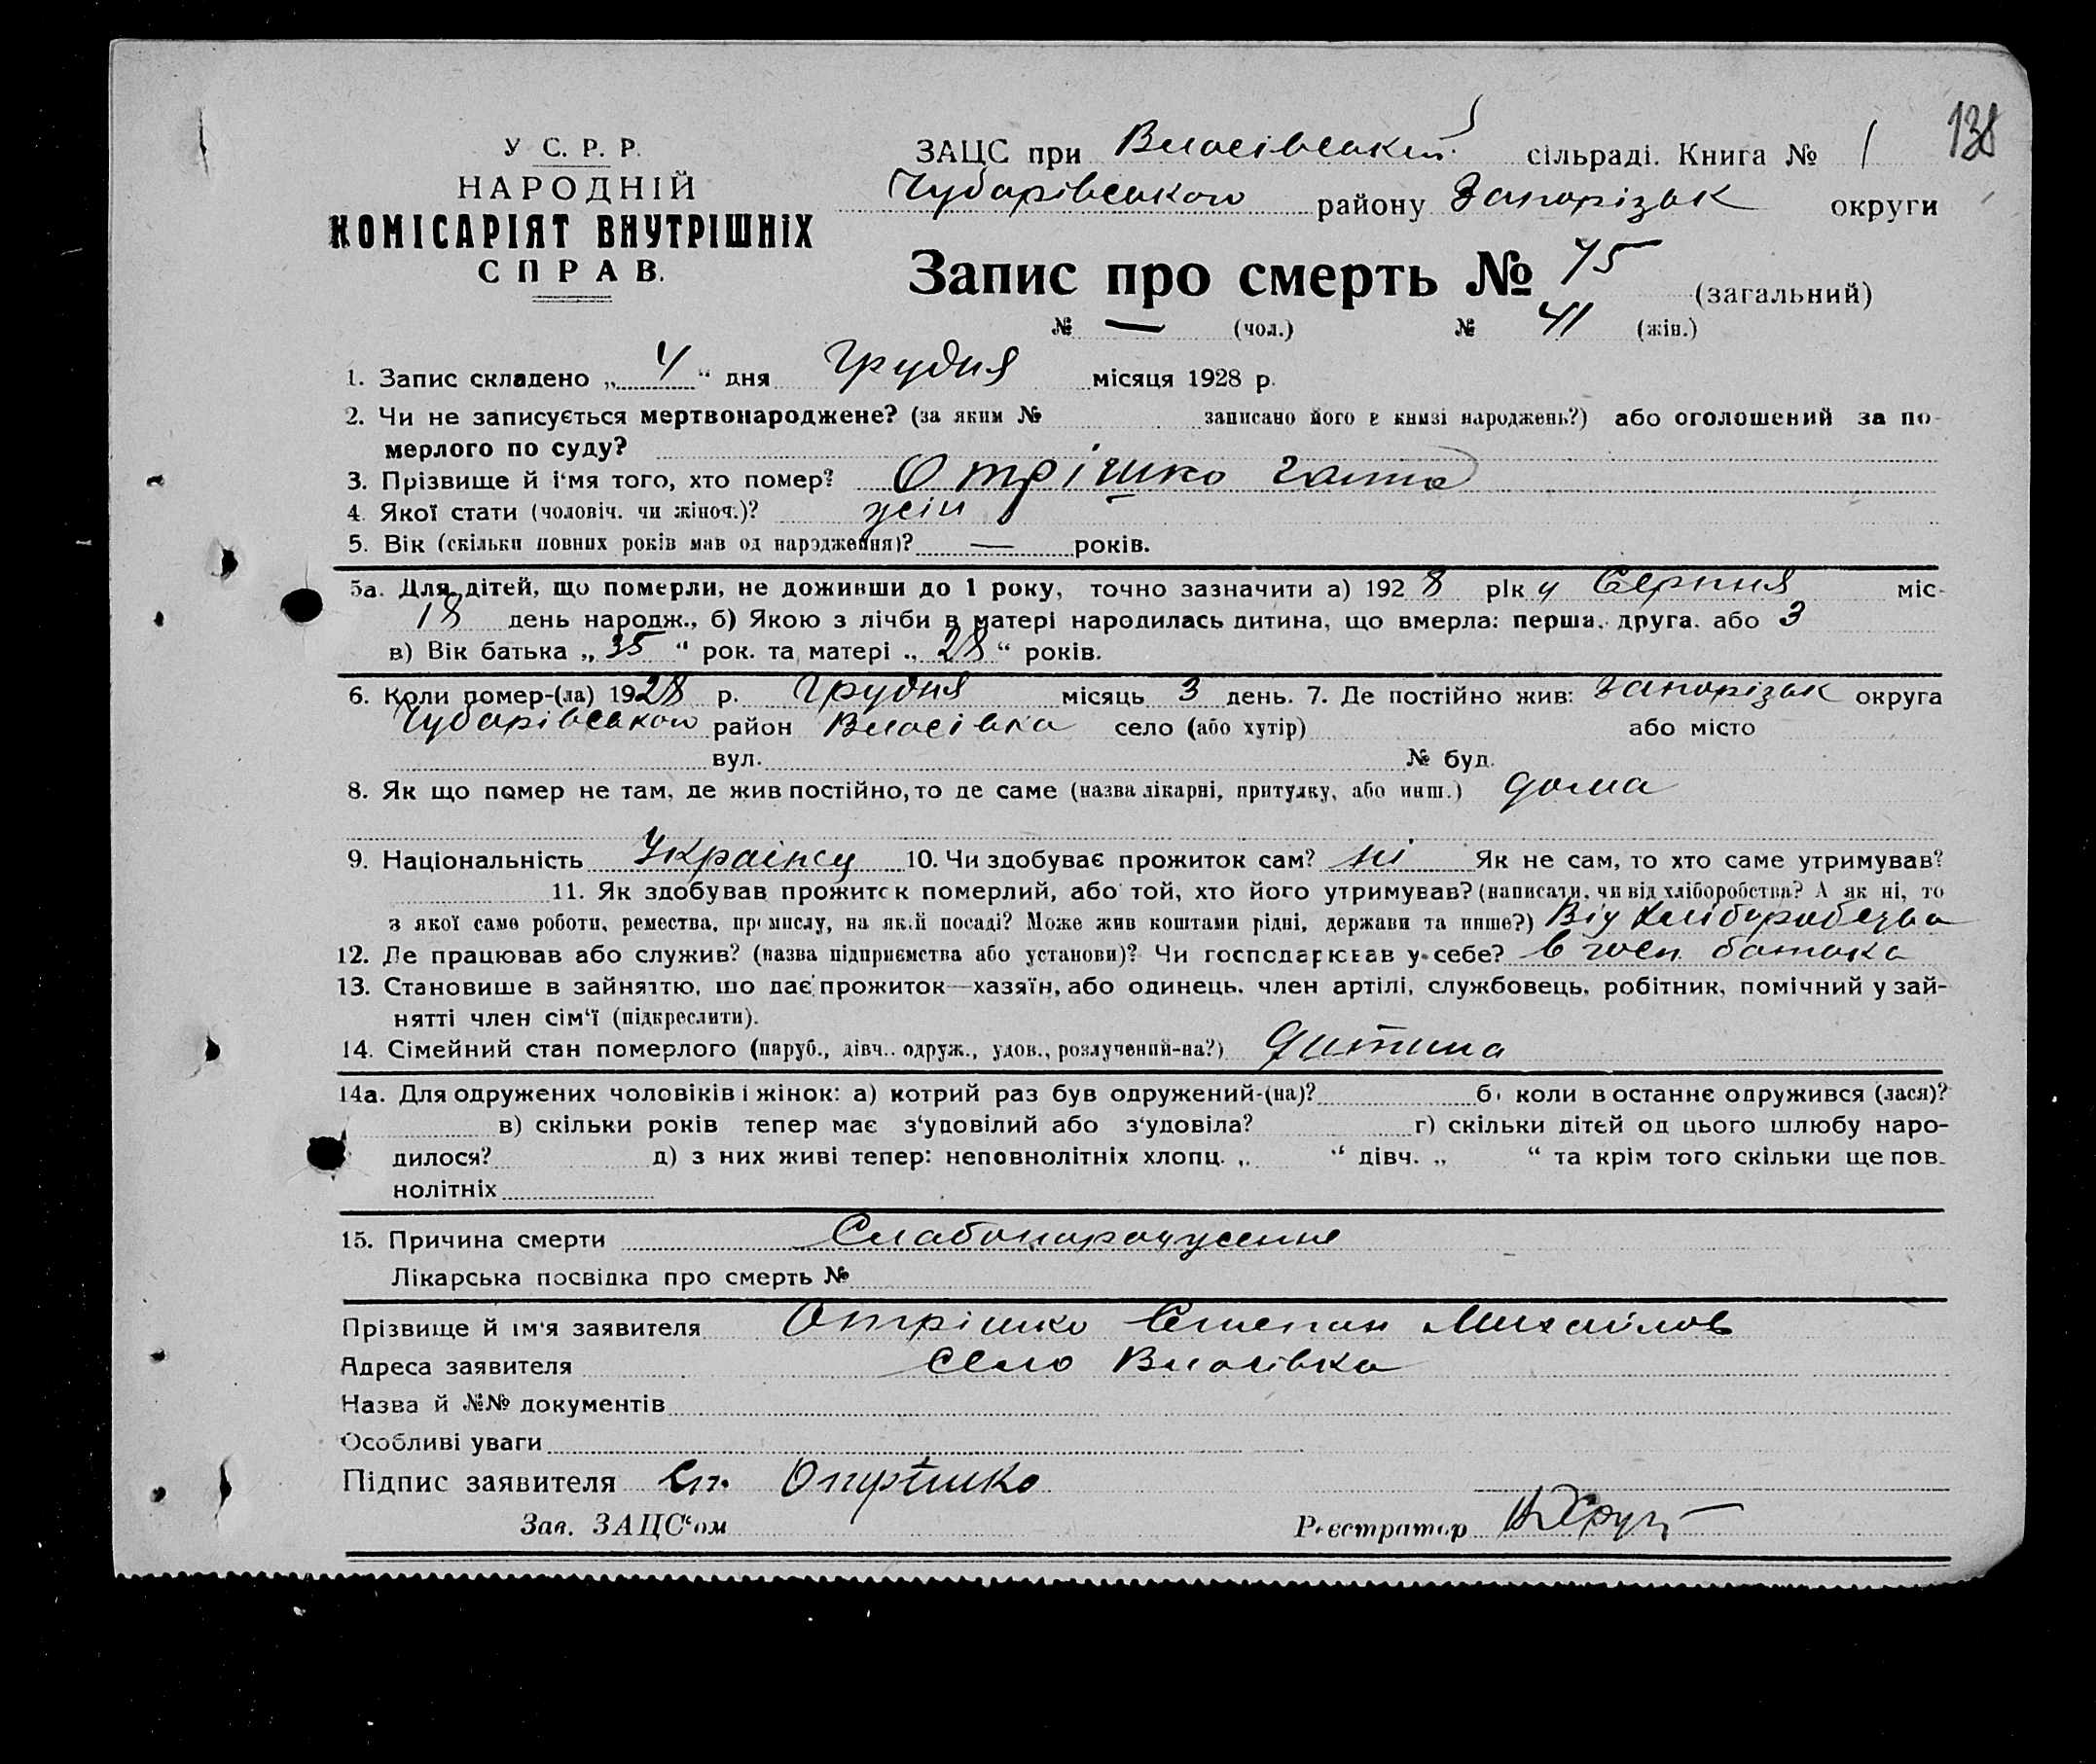 138
У С. Р. Р.
НАРОДНІЙ
КОМІСАРІЯТ ВНУТРІШНІХ
СПРАВ.
ЗАЦС при Власівській сільраді. Книга № 1
Чубарівського району Запорізьк округи
Запис про смерть № 75 (загальний)
№ — (чол.) № 41 (жін.)
1. Запис складено „ 4 “ дня Грудня місяця 1928 р.
2. Чи не записується мертвонароджене? (за яким № записано його в книзі народжень?) або оголошений за по-
мерлого по суду?
3. Прізвище й ім‘я того, хто помер? Отрішко Ганна
4. Якої стати (чоловіч. чи жіноч.)? жін
5. Вік (скільки повних років мав од народження)? — років.
5а. Для дітей, що померли, не доживши до 1 року, точно зазначити а) 1928 рік у Серпня міс-
18 день народж., б) Якою з лічби в матері народилась дитина, що вмерла: перша, друга, або 3
в) Вік батька „ 35 “ рок. та матері „ 28 “ років.
6. Коли помер-(ла) 1928 р. Грудня місяць 3 день. 7. Де постійно жив: Запорізьк округа
Чубарівського район Власівка село (або хутір) або місто
вул. № буд.
8. Як що помер не там, де жив постійно, то де саме (назва лікарні, притулку, або инш.) дома
9. Національність Украінсц 10. Чи здобуває прожиток сам? ні Як не сам, то хто саме утримував?
11. Як здобував прожиток померлий, або той, хто його утримував? (написати, чи від хліборобства? А як ні, то
з якої саме роботи, ремества, промислу, на якій посаді? Може жив коштами рідні, держави та инше?) Від хлиборобства
12. Де працював або служив? (назва підприємства або установи)? Чи господарював у себе? в госп. батька
13. Становище в зайняттю, що дає прожиток—хазяїн, або одинець, член артілі, службовець, робітник, помічний у зай-
нятті член сім‘ї (підкреслити).
14. Сімейний стан померлого (паруб., дівч.. одруж., удов., розлучений-на?) дитина
14а. Для одружених чоловіків і жінок: а) котрий раз був одружений-(на)? б) коли в останнє одружився (лася)?
в) скільки років тепер має з‘удовілий або з‘удовіла? г) скільки дітей од цього шлюбу наро-
дилося? д) з них живі тепер: неповнолітніх хлопц. „ “ дівч. „ “ та крім того скільки ще пов-
нолітніх
15. Причина смерти Слабонародження
Лікарська посвідка про смерть №
Прізвище й ім‘я заявителя Отрішко Степан Михайлов
Адреса заявителя село Власівка
Назва й №№ документів
Особливі уваги
Підпис заявителя Ст. Отрішко
Зав. ЗАЦС‘ом Реєстратор